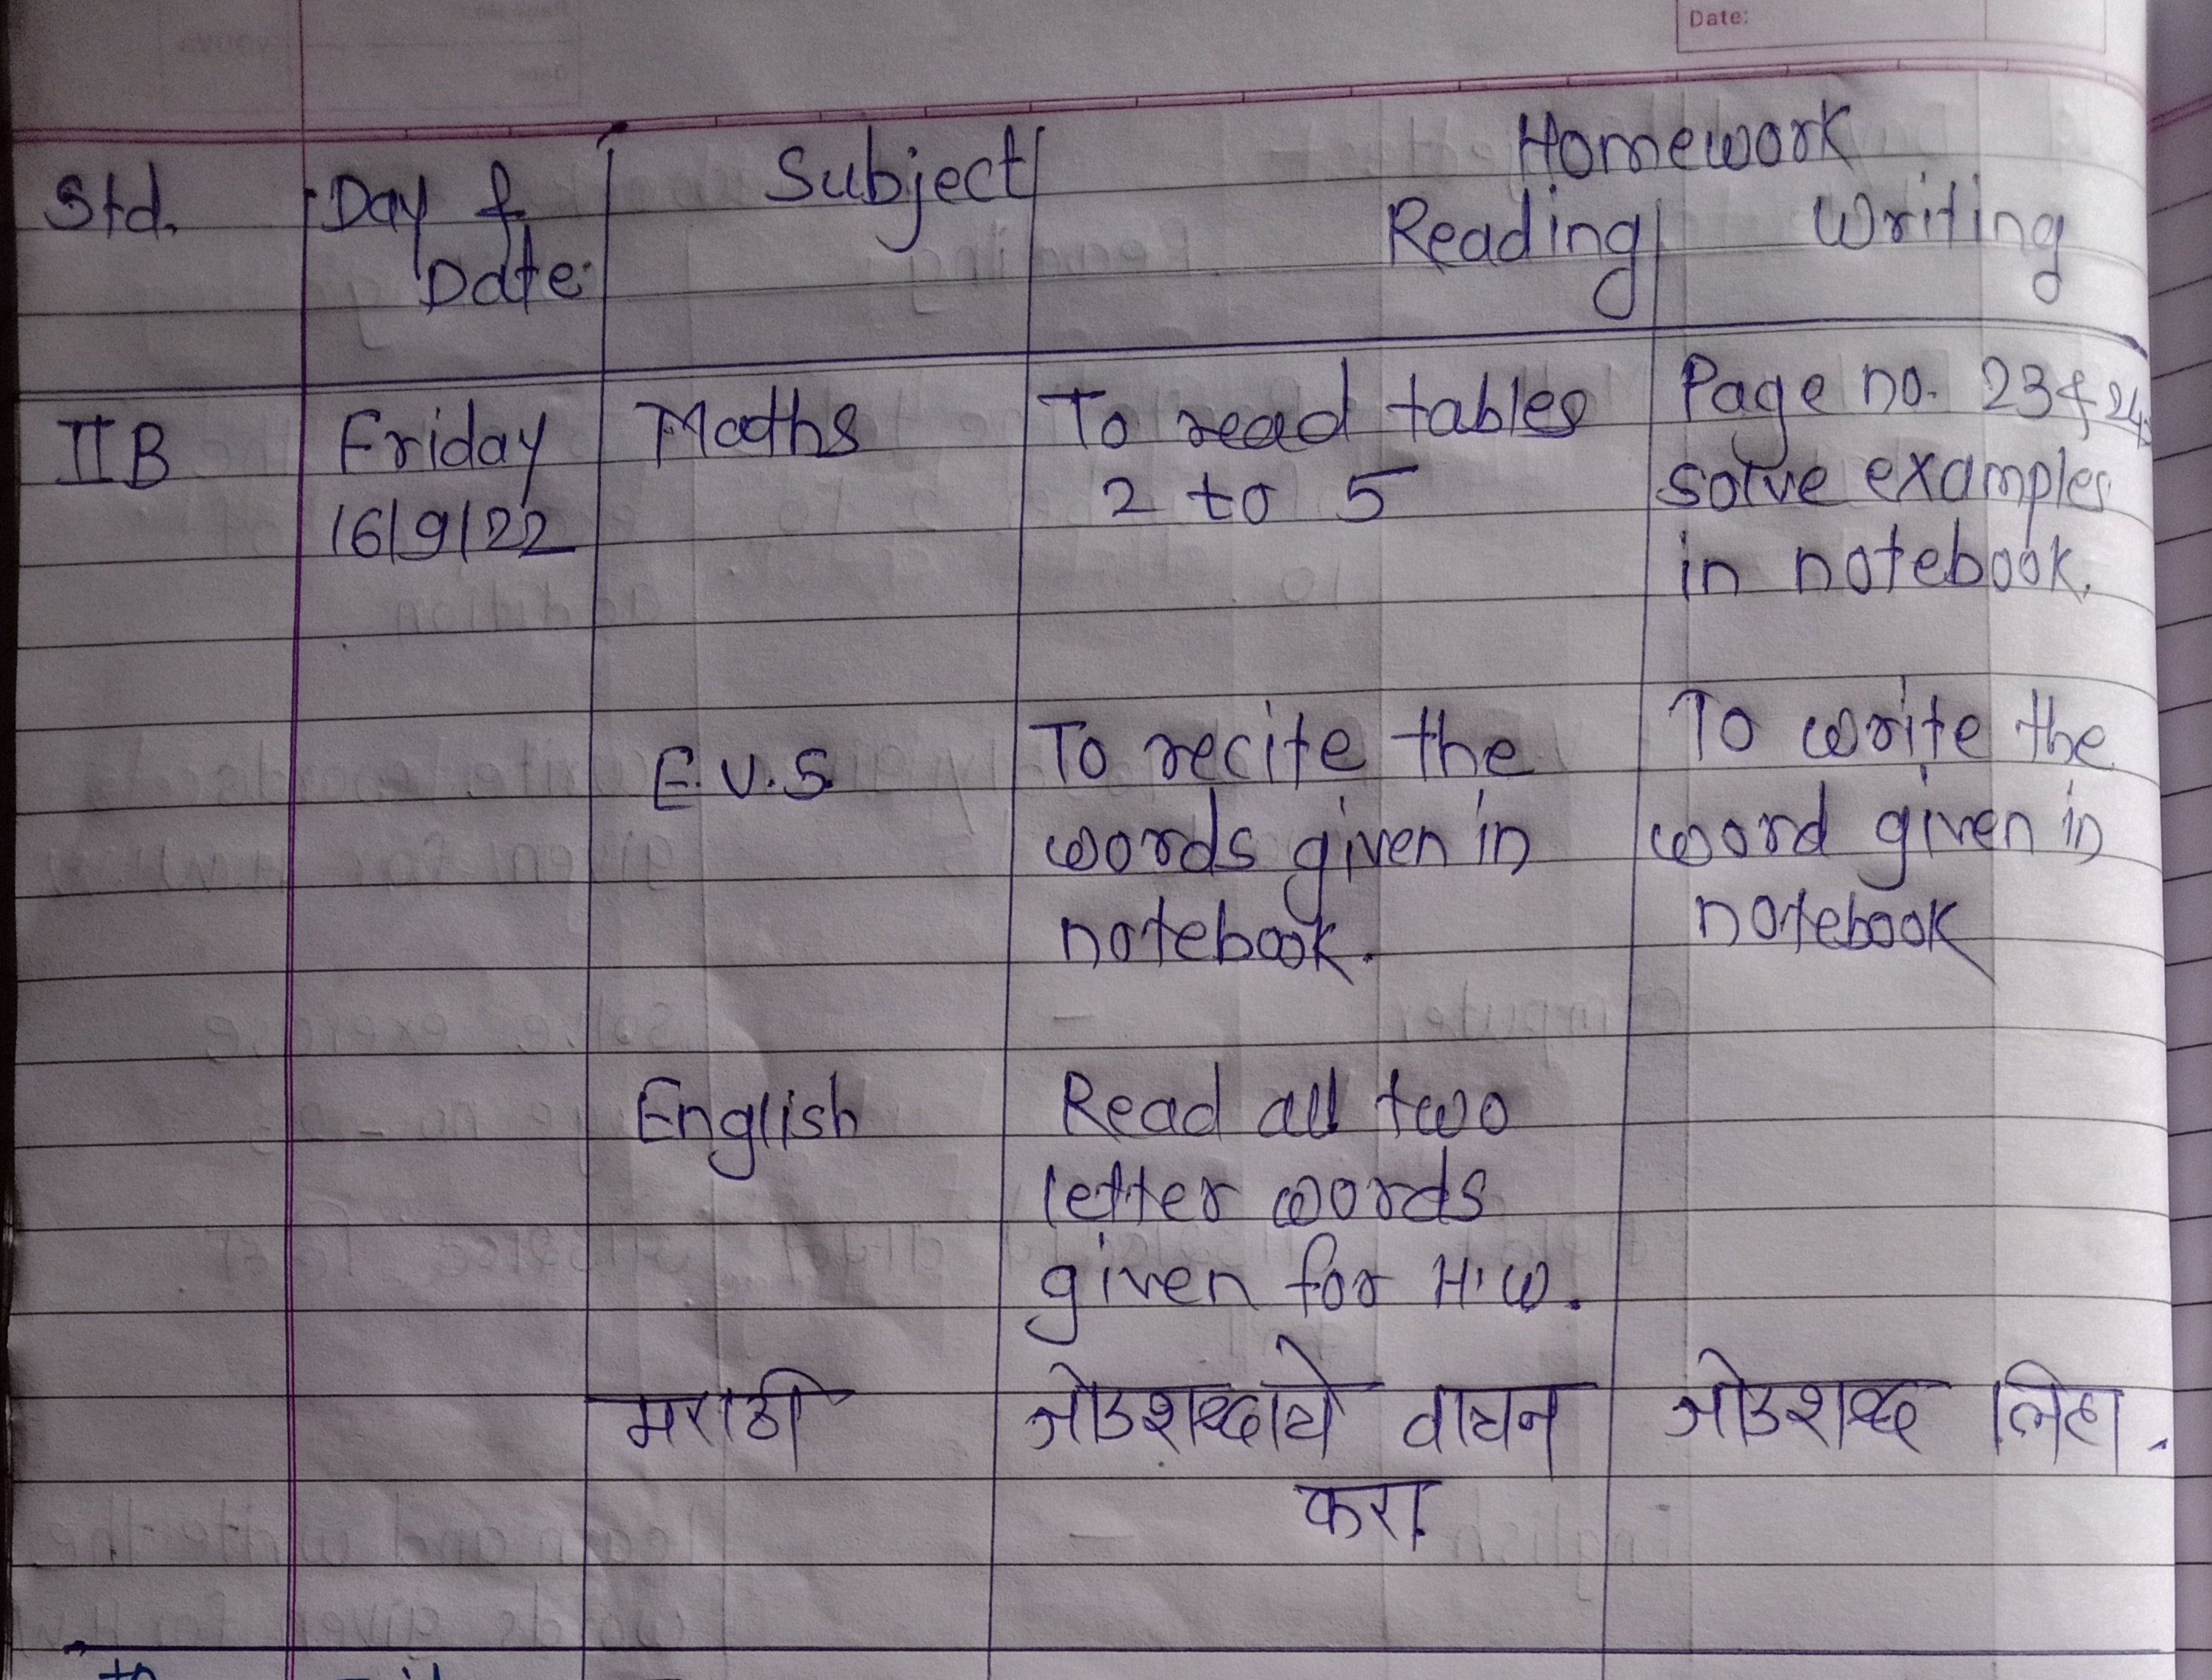 Date:
Homework
Std. Day & Subject Reading Writing
Date:
II B Friday Maths To read tables Page no. 23 & 24
16/9/22 2 to 5 solve examples
in notebook.
E.V.S. To recite the To write the
words given in word given in
notebook. notebook
English Read all two
letter words
given for H.W.
मराठी जोडशब्दाचे वाचन जोडशब्द लिहा.
करा.